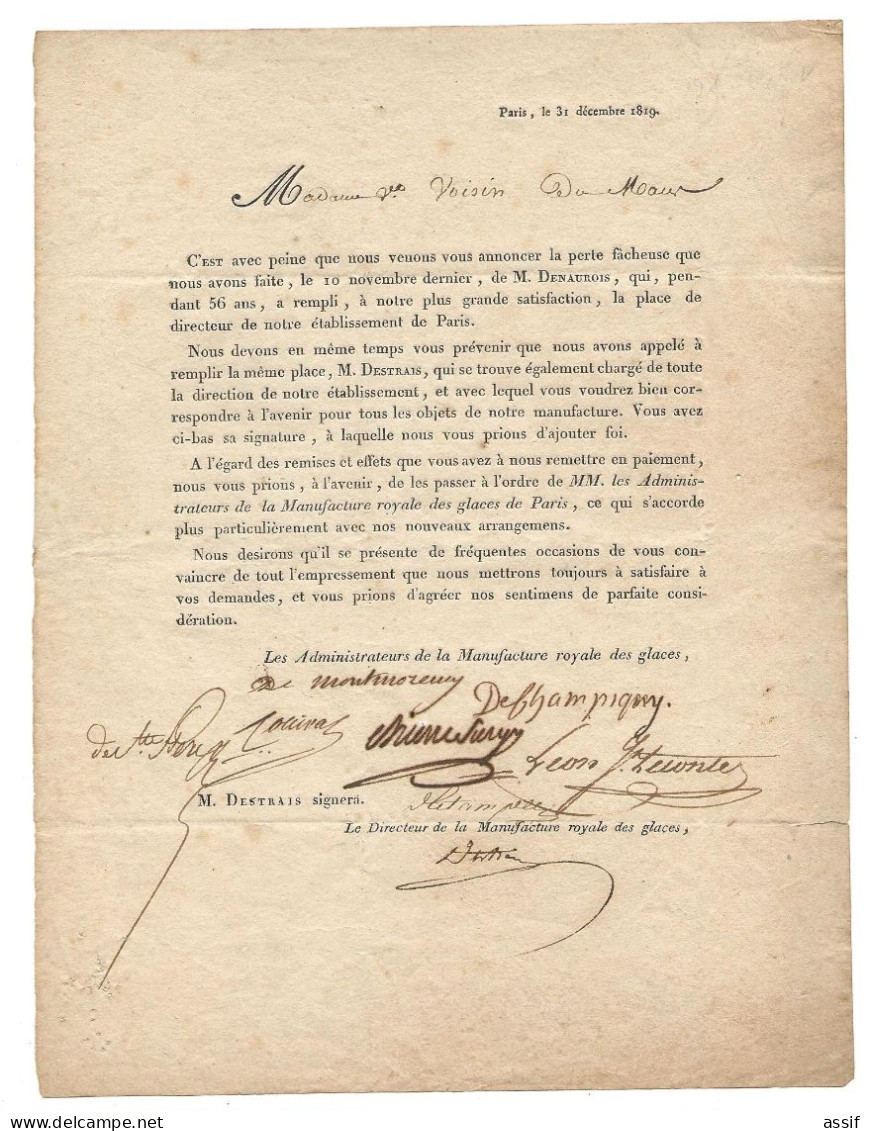 Paris, le 31 décembre 1819.
Madame Vve Voisin Du Mans
C'EST avec peine que nous venons vous annoncer la perte fâcheuse que
nous avons faite, le 10 novembre dernier, de M. DENAUROIS, qui, pen-
dant 56 ans, a rempli, à notre plus grande satisfaction, la place de
directeur de notre établissement de Paris.
Nous devons en même temps vous prévenir que nous avons appelé à
remplir la même place, M. DESTRAIS, qui se trouve également chargé de toute
la direction de notre établissement, et avec lequel vous voudrez bien cor-
respondre à l'avenir pour tous les objets de notre manufacture. Vous avez
ci-bas sa signature, à laquelle nous vous prions d'ajouter foi.
A l'égard des remises et effets que vous avez à nous remettre en paiement,
nous vous prions, à l'avenir, de les passer à l'ordre de MM. les Adminis-
trateurs de la Manufacture royale des glaces de Paris, ce qui s'accorde
plus particulièrement avec nos nouveaux arrangemens.
Nous desirons qu'il se présente de fréquentes occasions de vous con-
vaincre de tout l'empressement que nous mettrons toujours à satisfaire à
vos demandes, et vous prions d'agréer nos sentimens de parfaite consi-
dération.
Les Administrateurs de la Manufacture royale des glaces,
De montmorency
DeChampigny.
Leon
M. DESTRAIS signera.
Le Directeur de la Manufacture royale des glaces,
assif